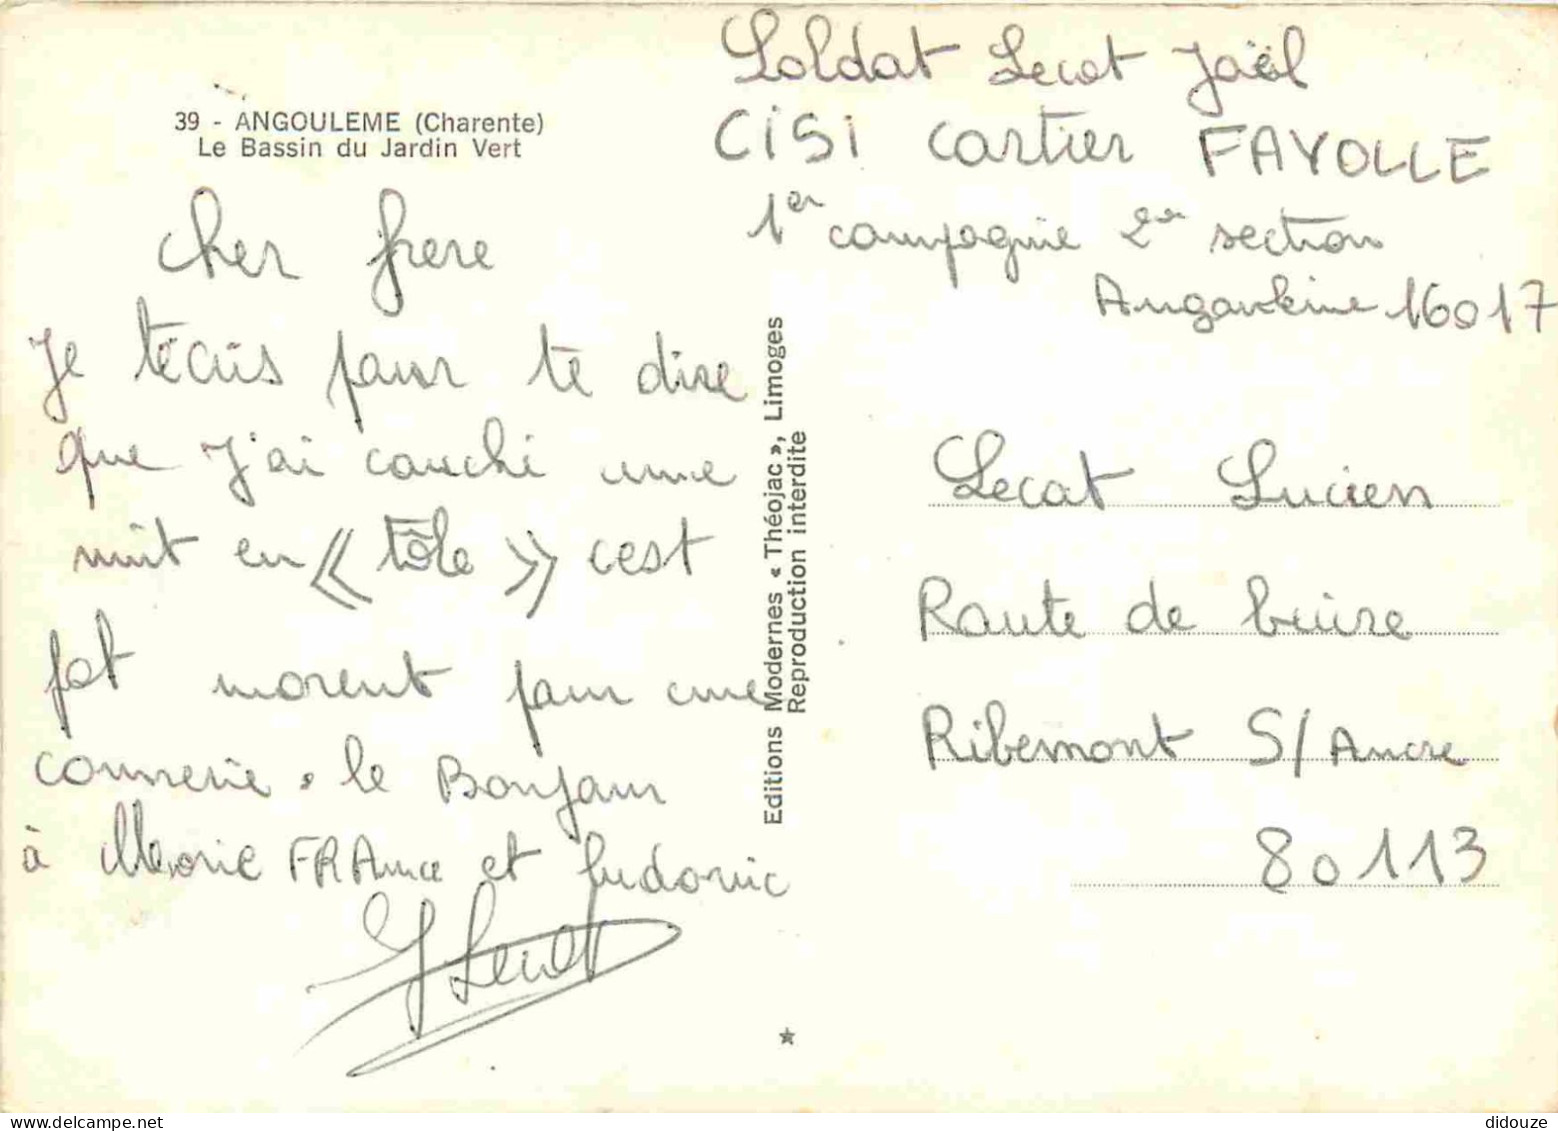 39 - ANGOULEME (Charente)
Le Bassin du Jardin Vert
cher frere
Je técris pour te dire
que J'ai couché une
nuit en « tôle » cest
fat morent pour une
connerie. le Bonjour
à Marie FRAnce et ludovic
J Lecat
Editions Modernes « Théojac », Limoges
Reproduction interdite
Soldat Lecat Joël
CiSi cartier FAYOLLE
1er compagnie 2er section
Angoulême 16017
Lecat Lucien
Route de
Ribemont S/Ancre
80113
didouze